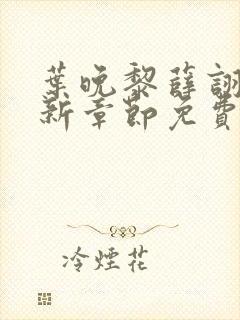 葉晚黎薛詡
新章節免費
冷煙花